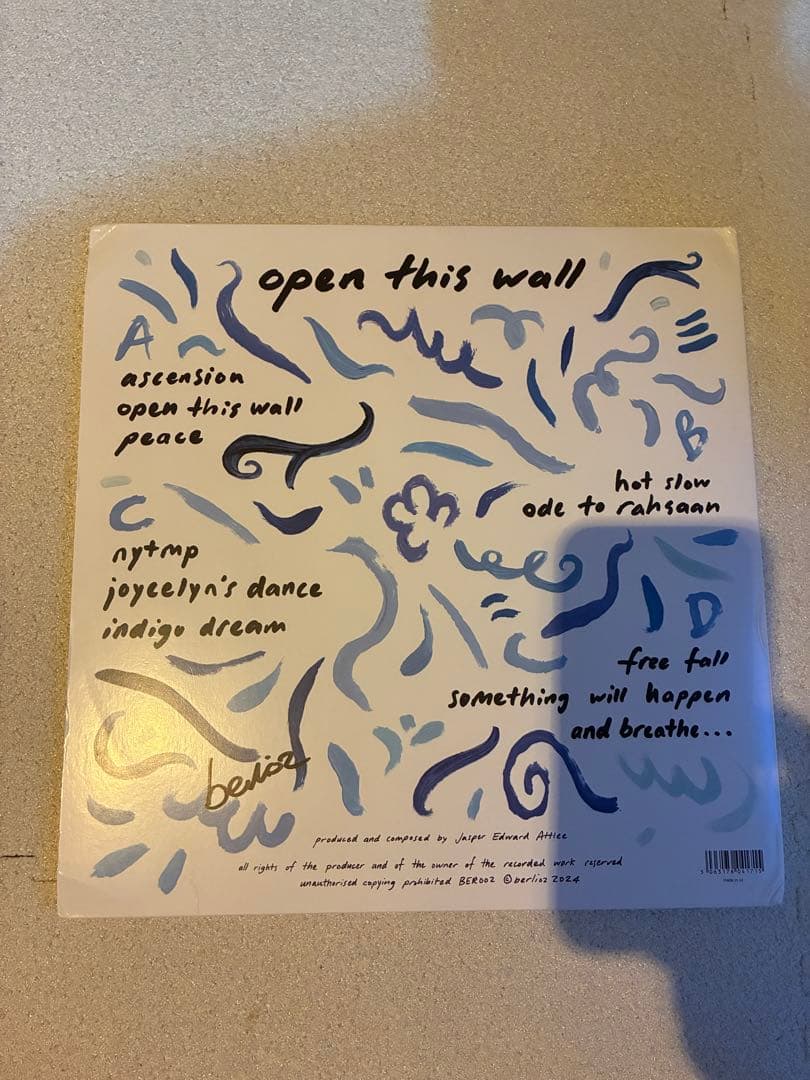 open this wall
A
ascension
open this wall
peace
B
hot slow
ode to rahsaan
C
nytmp
joycelyn's dance
indigo dream
D
free fall
something will happen
and breathe...
berlioz
produced and composed by Jasper Edward Attlee
all rights of the producer and of the owner of the recorded work reserved
unauthorised copying prohibited BER002 ©berlioz 2024